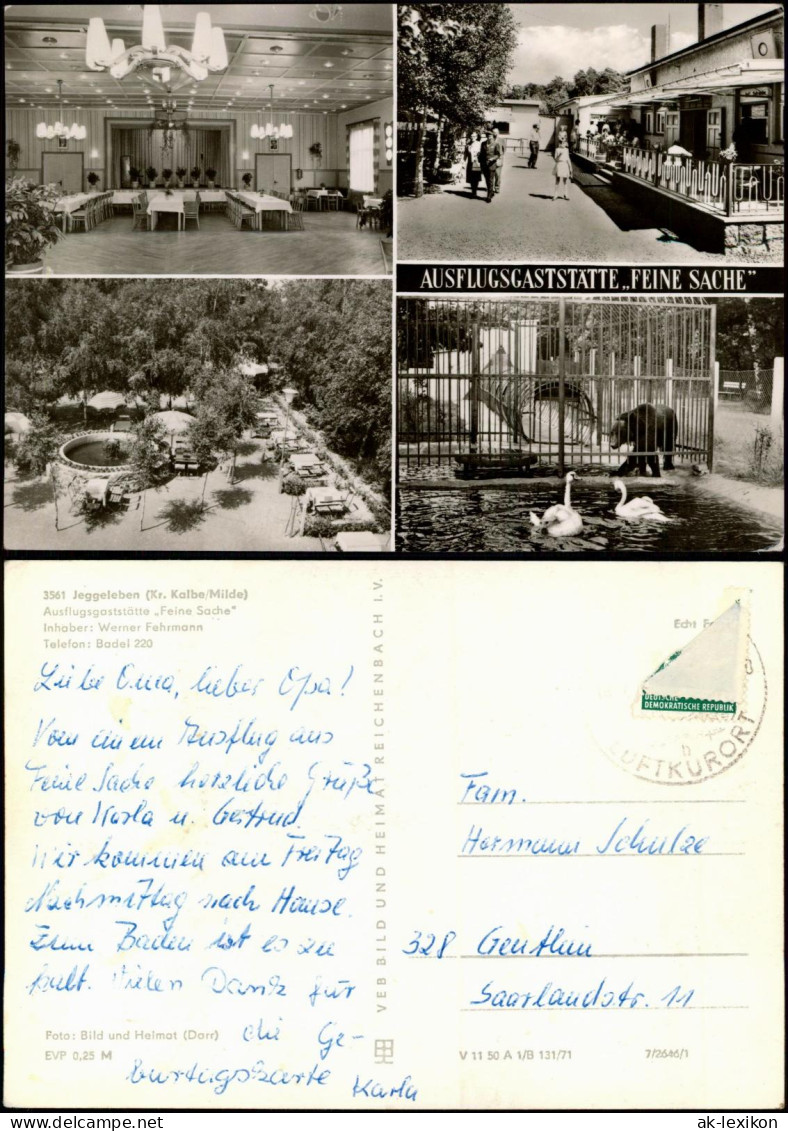 AUSFLUGSGASTSTÄTTE „FEINE SACHE"
3561 Jeggeleben (Kr. Kalbe/Milde)
Ausflugsgaststätte „Feine Sache"
Inhaber: Werner Fehrmann
Telefon: Badel 220
Liebe Oma, lieber Opa!
Von einem Ausflug aus
Feine Sache herzliche Grüße
von Karla u. Gertrud.
Wir kommen am Freitag
Nachmittag nach Hause.
Zum Baden ist es zu
kalt. Vielen Dank für
die Ge-
burtagskarte
Karla
Foto: Bild und Heimat (Darr)
EVP 0,25 M
VEB BILD UND HEIMAT REICHENBACH I. V.
Echt
DEUTSCHE
DEMOKRATISCHE REPUBLIK
b
LUFTKURORT
Fam.
Hermann Schulze
328 Genthin
Saarlandstr. 11
V 11 50 A 1/B 131/71
7/2646/1
ak-lexikon